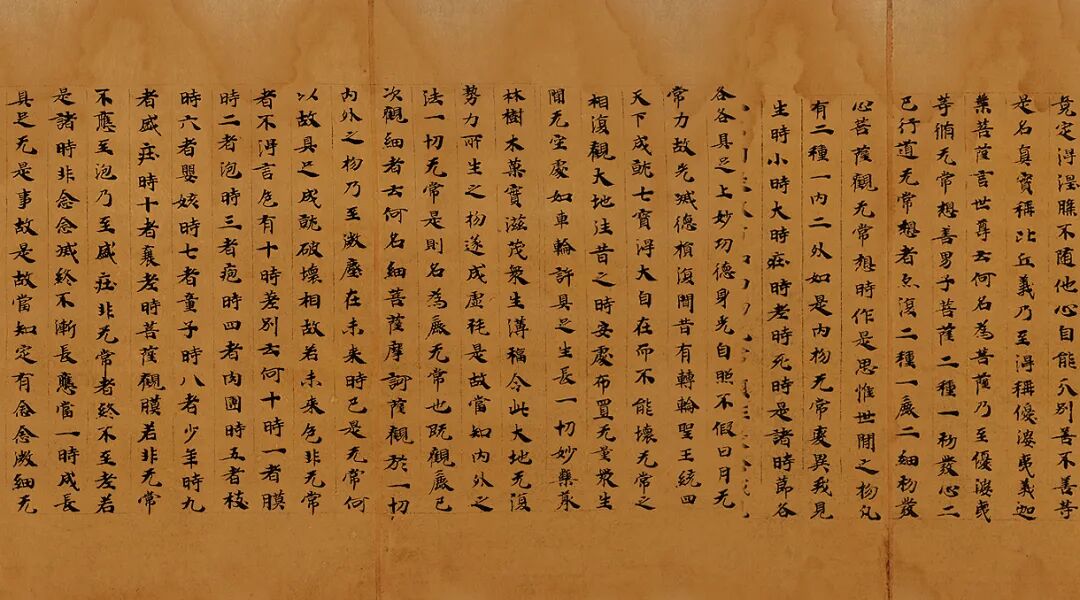 竟定得涅槃不随他心自能分别善不善等
是名真實稱比丘義乃至得稱優婆夷義迦
葉菩薩言世尊云何名為菩薩乃至優婆夷
等脩无常想善男子菩薩二種一初發心二
已行道无常想者亦復二種一麁二細初發
心菩薩觀无常想時作是思惟世間之物凡
有二種一內二外如是內物无常變異我見
生時小時大時壯時老時死時是諸時節各
各各具足上妙功德身光自照不假日月无
常力故光滅德損復聞昔有轉輪聖王統四
天下成就七寶得大自在而不能壞无常之
相復觀大地往昔之時安處布置无量衆生
間无空處如車輪許具足生長一切妙藥叢
林樹木菓實滋茂衆生薄福令此大地无復
勢力所生之物遂成虛耗是故當知內外之
法一切无常是則名為麁无常也既觀麁已
次觀細者云何名細菩薩摩訶薩觀於一切
內外之物乃至微塵在未來時已是无常何
以故具足成就破壞相故若未來色非无常
者不得言色有十時差別云何十時一者膜
時二者泡時三者疱時四者肉團時五者枝
時六者嬰孩時七者童子時八者少年時九
者盛壯時十者衰老時菩薩觀膜若非无常
不應至泡乃至盛壯非无常者終不至老若
是諸時非念念滅終不漸長應當一時成長
具足无是事故是故當知定有念念微細无